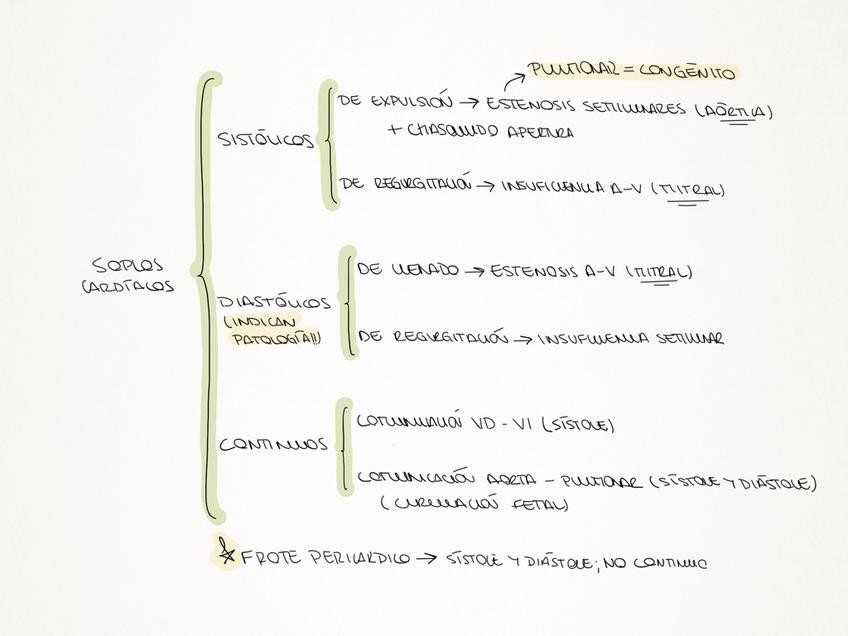 PULMONAR = CONGÉNITO
DE EXPULSIÓN → ESTENOSIS SEMILUNARES (AÓRTICA)
+ CHASQUIDO APERTURA
SISTÓLICOS
DE REGURGITACIÓN → INSUFICIENCIA A-V (MITRAL)
SOPLOS
CARDÍACOS
DE LLENADO → ESTENOSIS A-V (MITRAL)
DIASTÓLICOS
(INDICAN
PATOLOGÍA!!)
DE REGURGITACIÓN → INSUFICIENCIA SEMILUNAR
COMUNICACIÓN VD - VI (SÍSTOLE)
CONTINUOS
COMUNICACIÓN AORTA - PULMONAR (SÍSTOLE Y DIÁSTOLE)
(CIRCULACIÓN FETAL)
FROTE PERICÁRDICO → SÍSTOLE Y DIÁSTOLE; NO CONTINUO